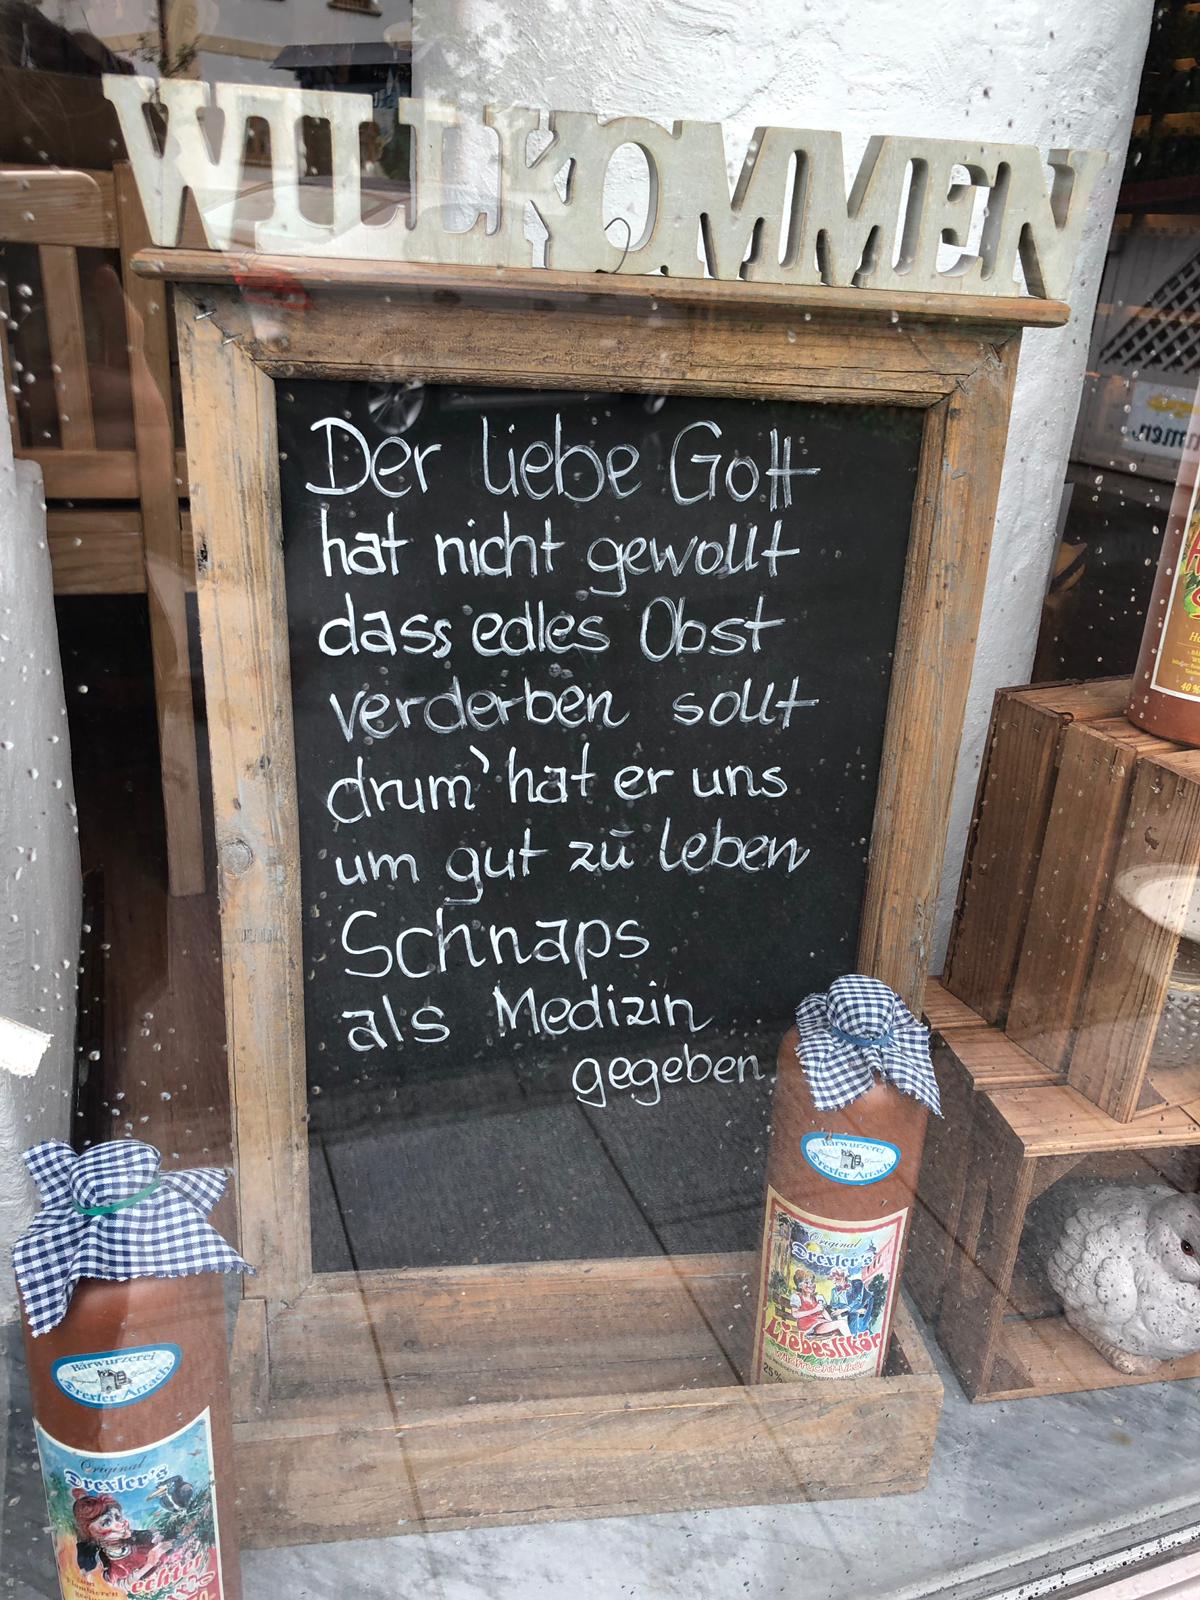 WILLKOMMEN
Der liebe Gott
hat nicht gewollt
dass edles Obst
verderben sollt
drum' hat er uns
um gut zu leben
Schnaps
als Medizin
gegeben
Bärwurzerei
Drexler Arrach
Original
Drexler's
Liebeslikör
Bärwurzerei
Drexler Arrach
Original
Drexler's
echter
40%